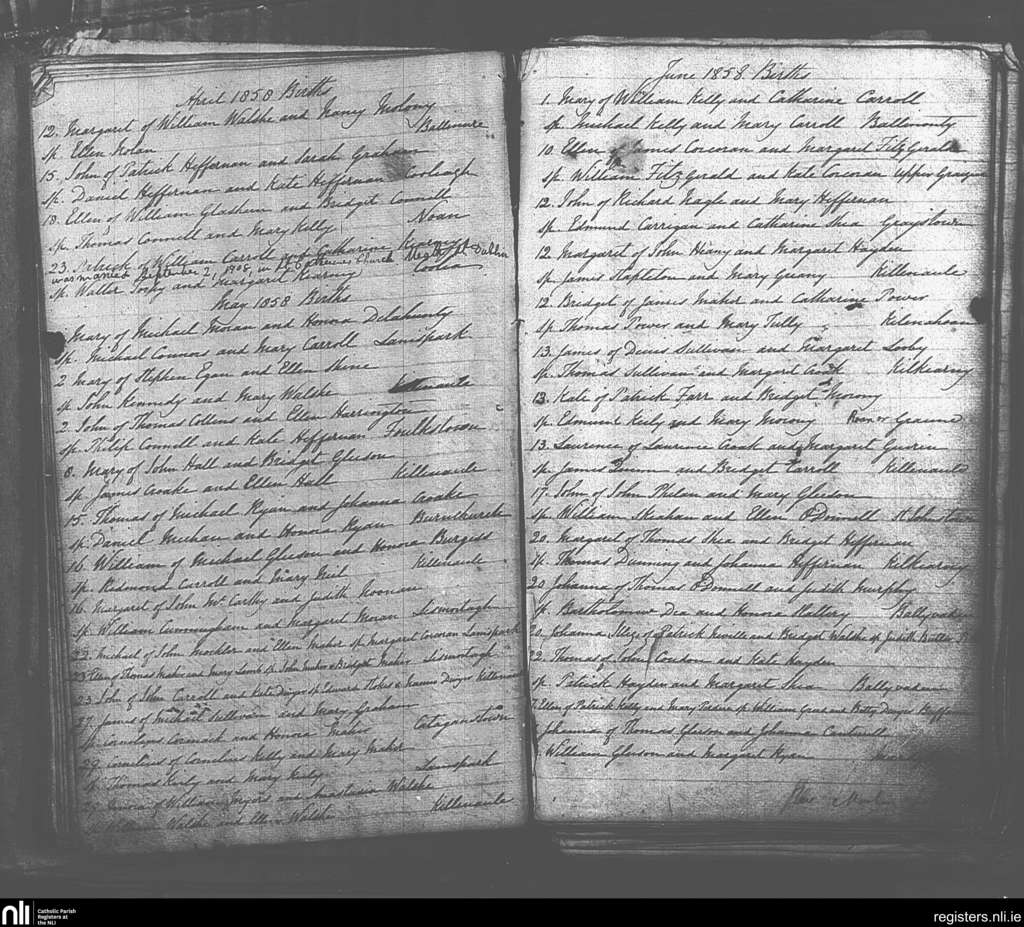 April 1858 Births
12. Margaret of William Walshe and Nancy Molony
Sp. Ellen Nolan Ballinure
15. John of Patrick Heffernan and Sarah Graham
Sp. Daniel Heffernan and Kate Heffernan Cooleagh
18. Ellen of William Glasheen and Bridget Connell
Sp. Thomas Connell and Mary Kelly Noan
23. Patrick of William Carroll and Catharine Kearney
was married September 2, 1908, in St Catherine's Church Meath St. Dublin
Sp. Walter and Margaret Kearney Coolea
May 1858 Births
Mary of Michael Moran and Honora Delahunty
Sp. Michael Connors and Mary Carroll Lanespark
2 Mary of Stephen Egan and Ellen Shine
Sp. John Kennedy and Mary Walshe Killenaule
2. John of Thomas Collins and Ellen Harrington
Sp. Philip Connell and Kate Heffernan Foulkstown
8. Mary of John Hall and Bridget Gleeson
Sp. James Croake and Ellen Hall Killenaule
15. Thomas of Michael Ryan and Johanna Croake
Sp. Daniel Meehan and Honora Ryan Burnchurch
16. William of Michael Gleeson and Honora Burgess
Sp. Redmond Carroll and Mary Neil Killenaule
16. Margaret of John McCarthy and Judith Noonan
Sp. William Cunningham and Margaret Moran Lismortagh
22. Michael of John Mockler and Ellen Maher sp Margaret Corcoran Lanespark
23. Ellen of Thomas Maher and Mary Lamb sp. John Maher & Bridget Maher Lismortagh
23. John of John Carroll and Kate Dwyer sp Edward Stokes & Dwyer Killenaule
27. James of Michael Sullivan and Mary Graham
Sp. Cornelius Cormack and Honora Maher
29. Cornelius of Cornelius Kelly and Mary Maher
Sp. Thomas Kiely and Mary Kiely Lanespark
of William Myers and Anastasia Walshe
Sp. William Walshe and Ellen Walshe Killenaule
June 1858 Births
1. Mary of William Kelly and Catharine Carroll
Sp. Michael Kelly and Mary Carroll Ballinonty
10. Ellen of James Corcoran and Margaret FitzGerald
Sp. William FitzGerald and Kate Corcoran Upper Graigue
12. John of Richard Nagle and Mary Heffernan
Sp. Edmund Carrigan and Catharine Shea Graystown
12. Margaret of John and Margaret Hayden
Sp. James Stapleton and Mary Killenaule
12. Bridget of James Maher and Catharine Power
Sp. Thomas Power and Mary Tully
13. James of Denis Sullivan and Margaret Looby
Sp. Thomas Sullivan and Margaret Croak Kilkearny
13. Kate of Patrick Farr and Bridget Morony
Sp. Edmund Kiely and Mary Morony Graune
13. Laurence of Laurence Croak and Margaret Guerin
Sp. James Quinn and Bridget Carroll Killenaule
17. John of John Phelan and Mary Gleeson
Sp. William Meehan and Ellen O'Donnell St Johnstown
20. Margaret of Thomas Shea and Bridget Heffernan
Sp. Thomas Dunning and Johanna Heffernan Kilkearny
20 Johanna of Thomas O'Donnell and Judith Murphy
Sp. Bartholomew Dea and Honora Slattery Ballyvadin
20. Johanna Illeg. of Patrick Neville and Bridget Walshe sp Judith Butler
22. Thomas of John Condon and Kate Hayden
Sp. Patrick Hayden and Margaret Shea Ballyvadin
Ellen of Patrick Kelly and Mary sp. William and Betty Dwyer
Johanna of Thomas Gleeson and Johanna Cantwell
William Gleeson and Margaret Ryan
nli
Catholic Parish
Registers at
the NLI
registers.nli.ie